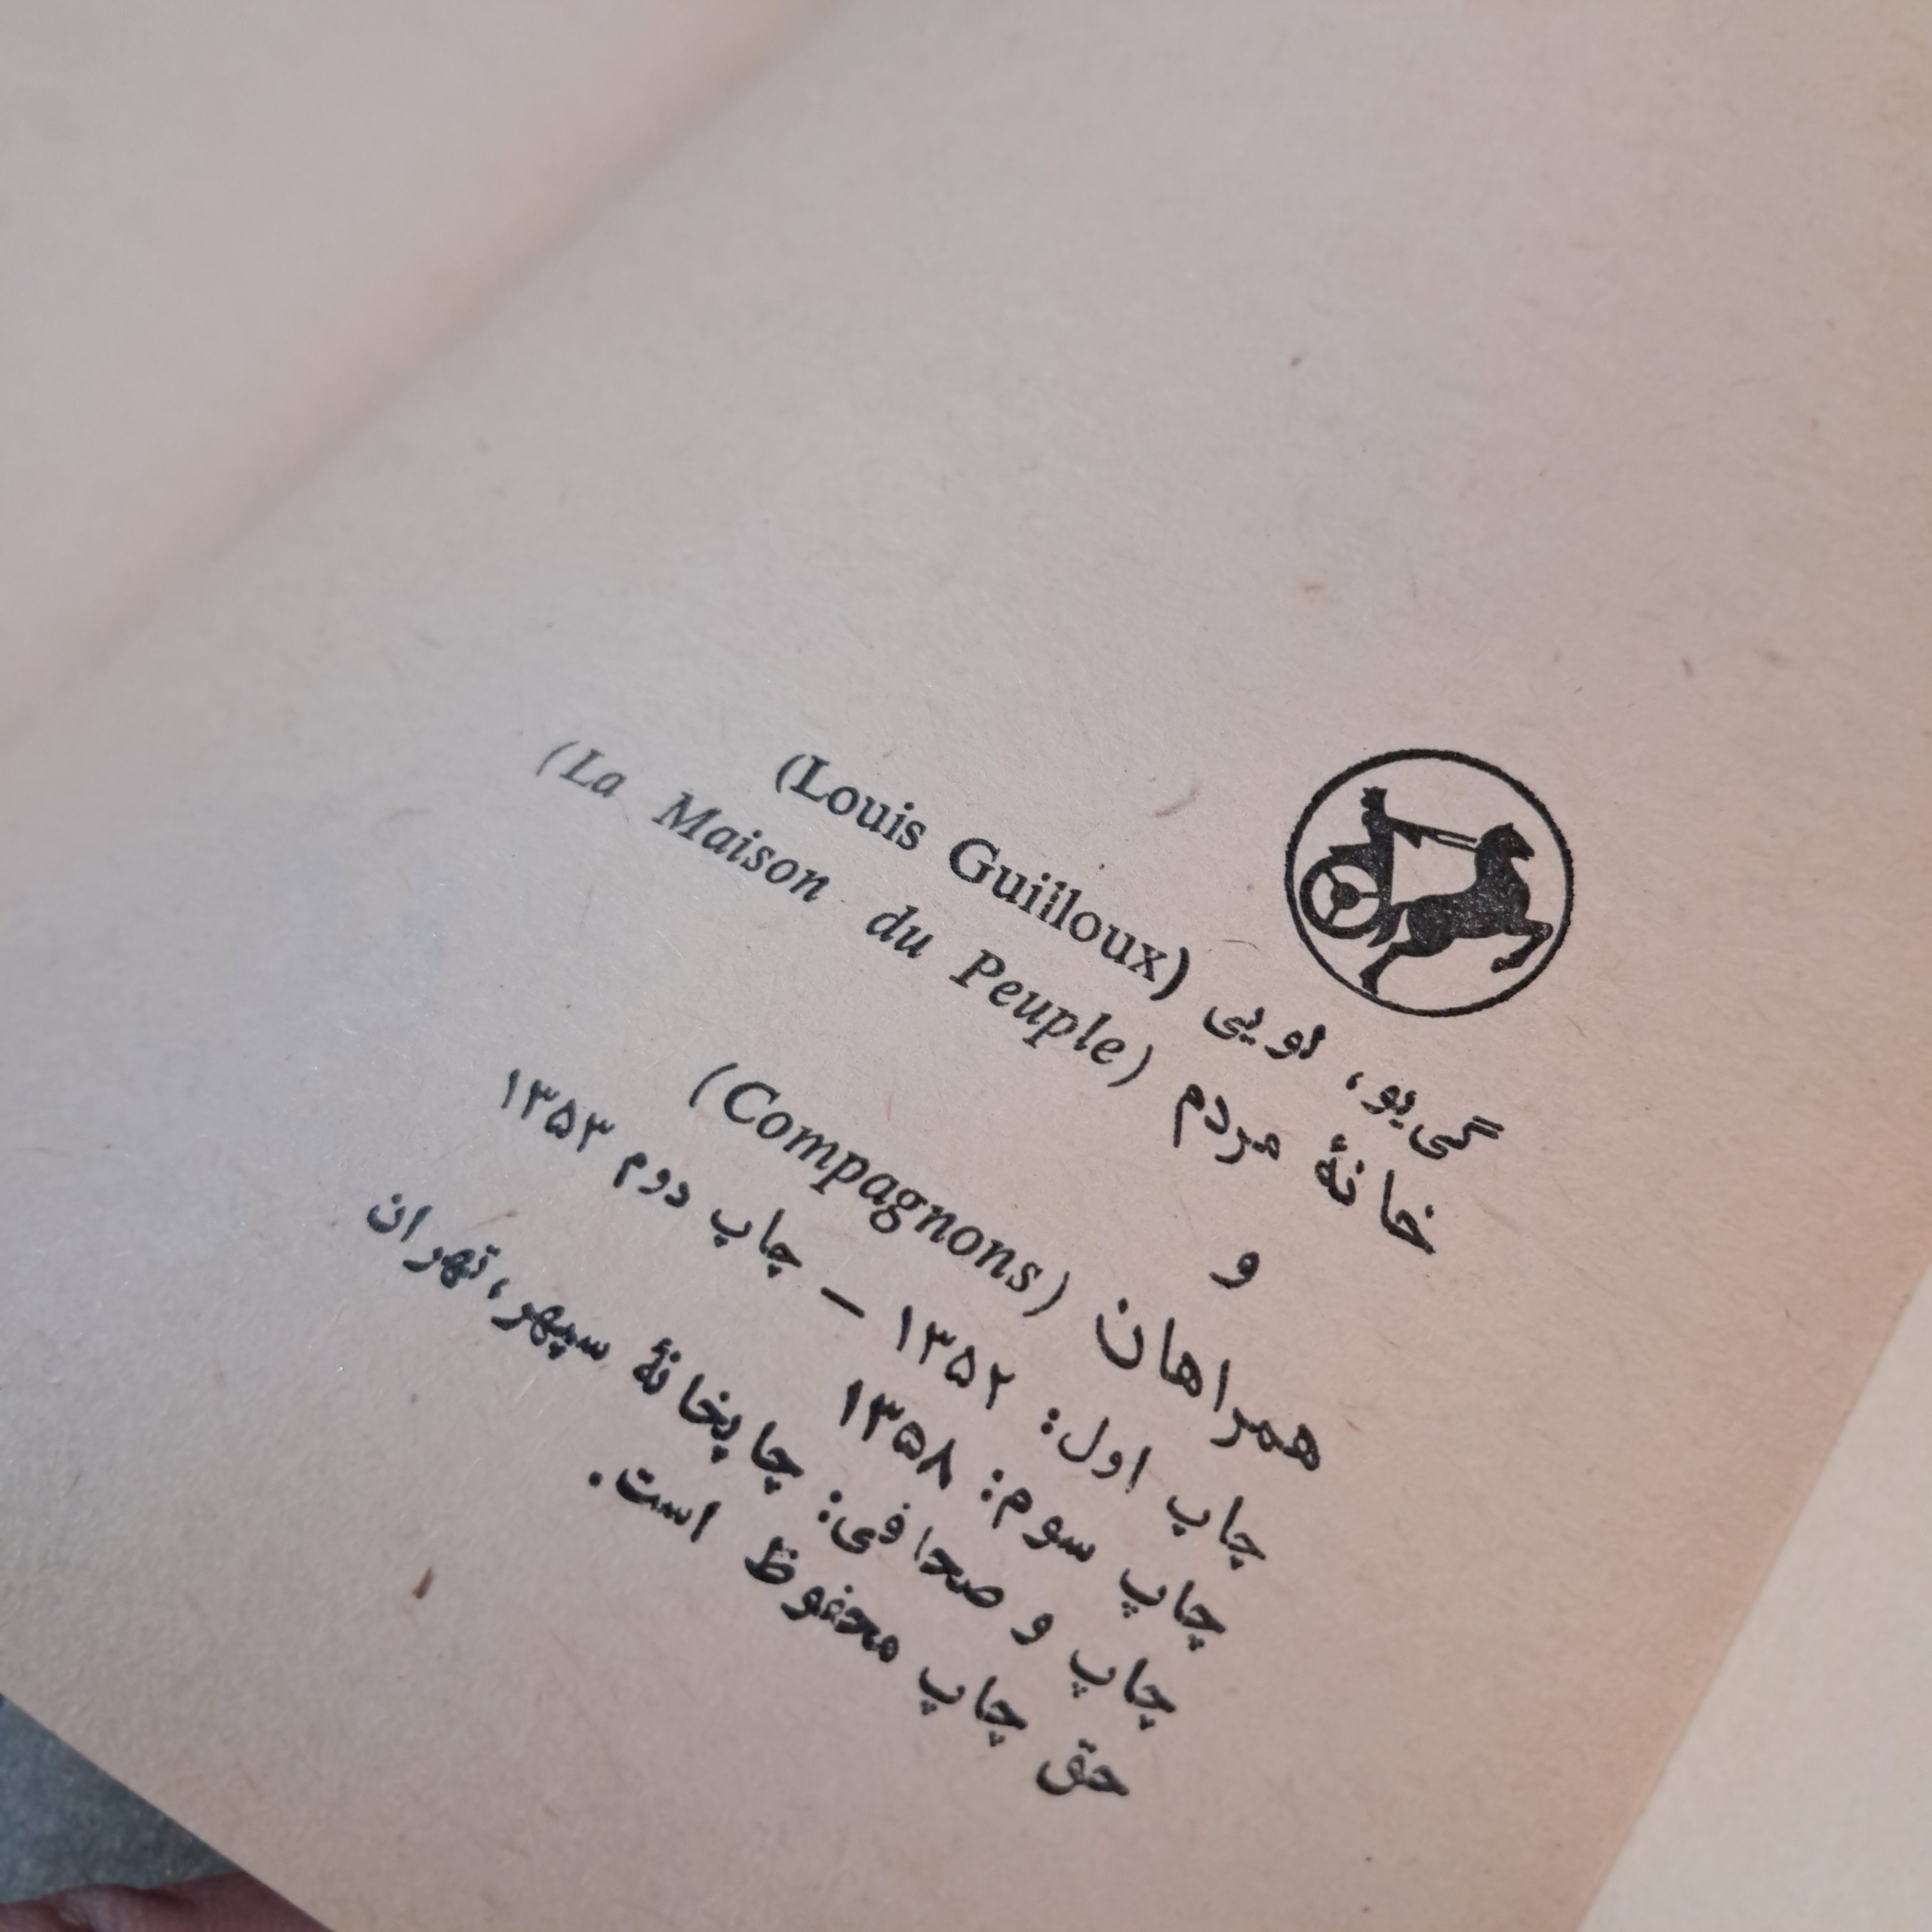 گی‌یو، لویی (Louis Guilloux)
خانهٔ مردم (La Maison du Peuple)
و
همراهان (Compagnons)
چاپ اول: ۱۳۵۲ – چاپ دوم ۱۳۵۳
چاپ سوم: ۱۳۵۸
چاپ و صحافی: چاپخانهٔ سپهر، تهران
حق چاپ محفوظ است.